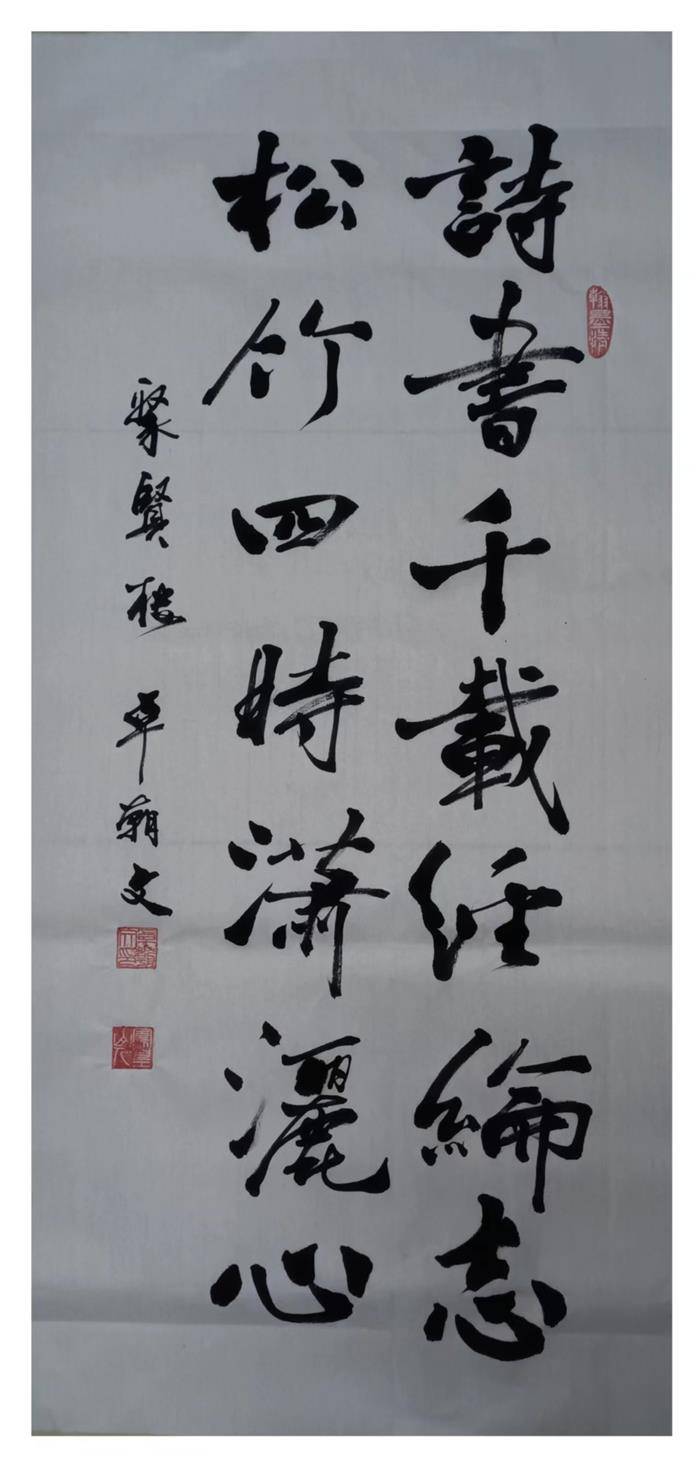 詩書千載経綸志
松竹四時瀟灑心
聚賢樓 卓朝文